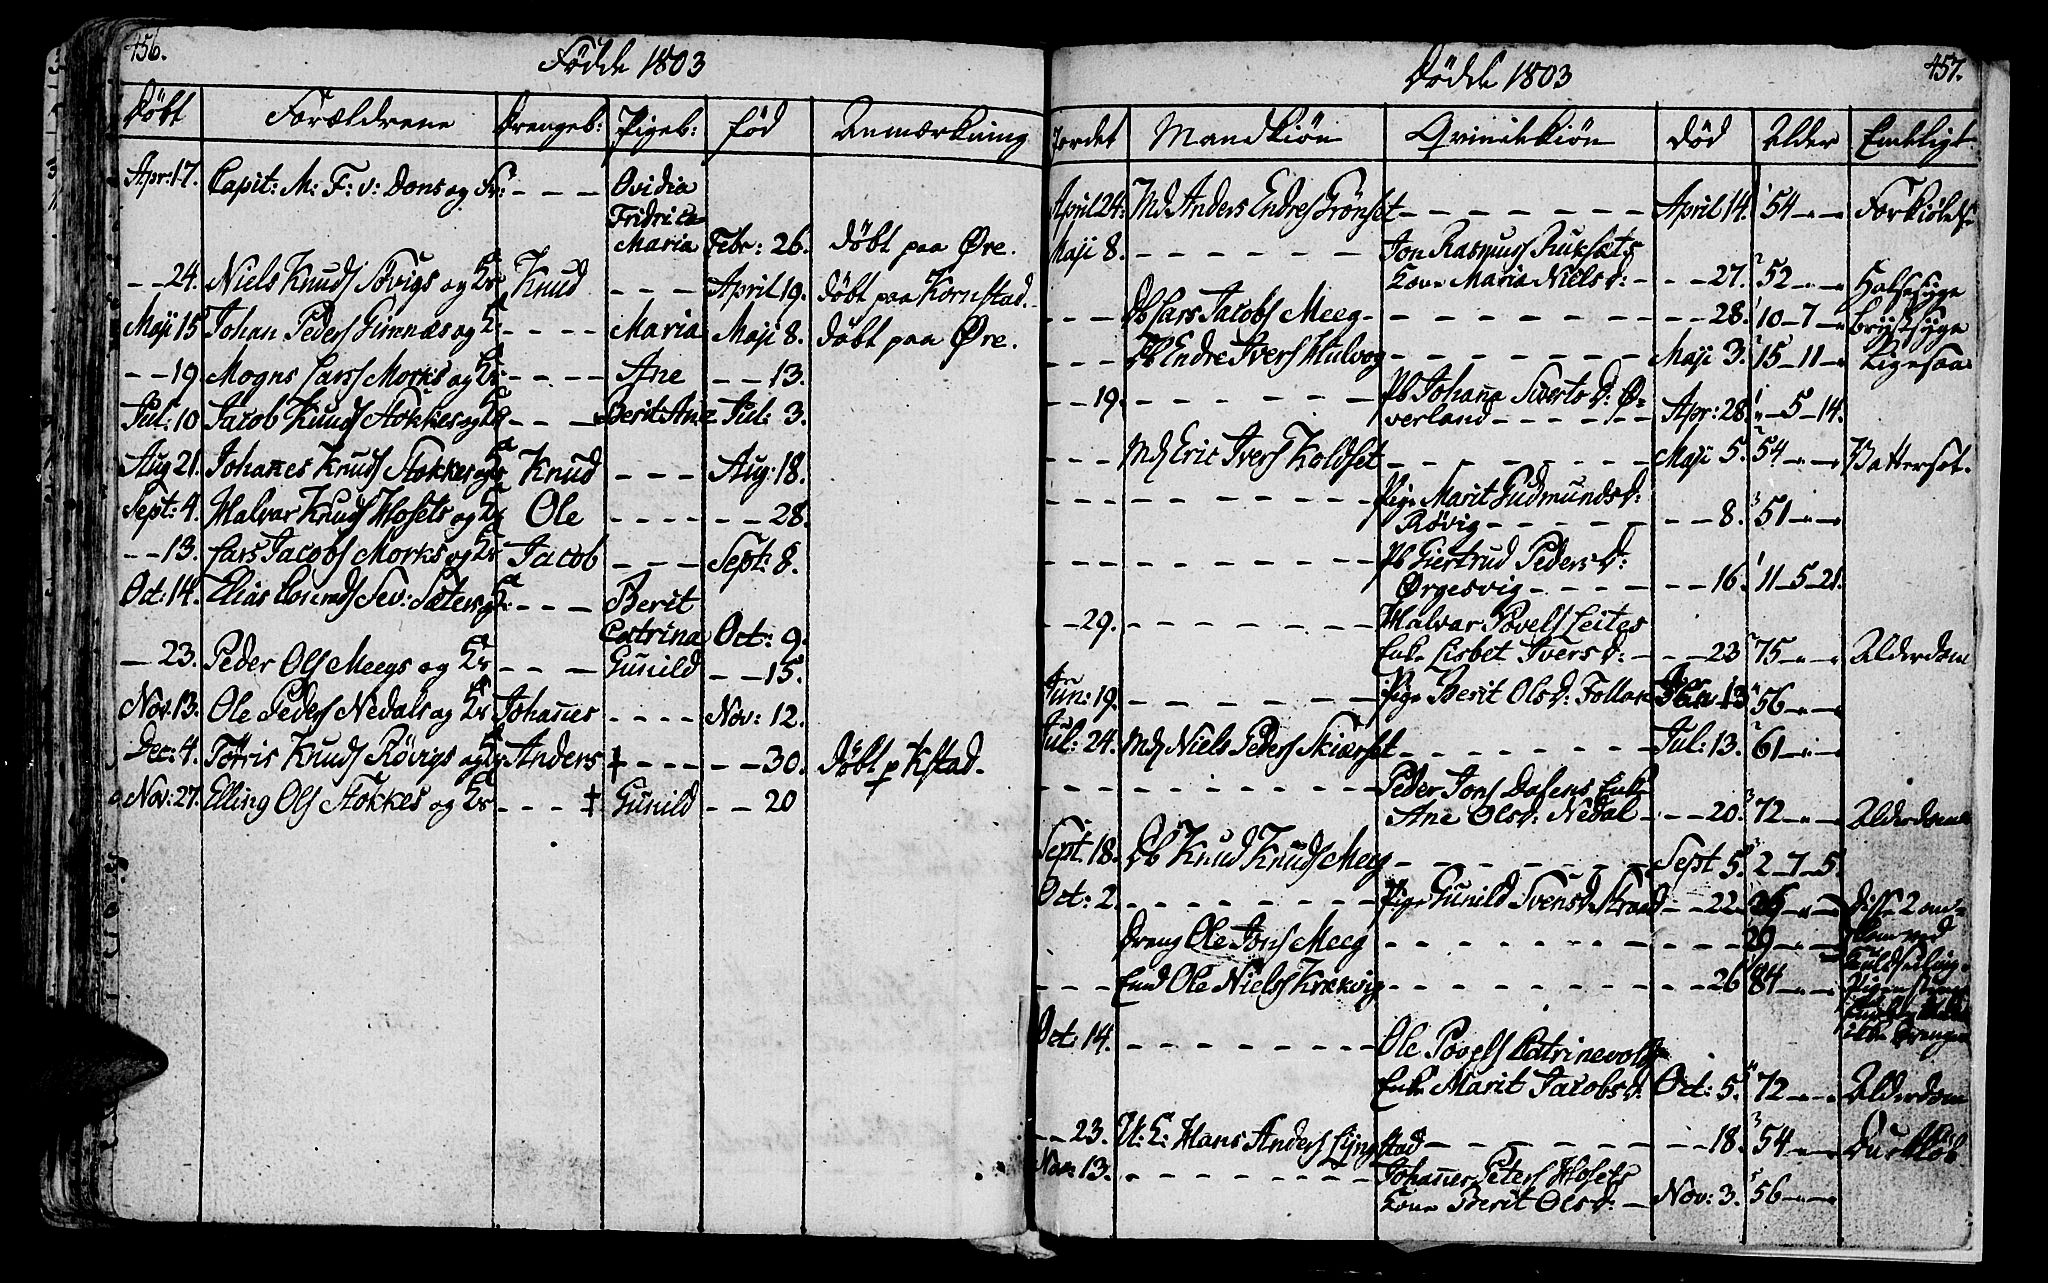 456.
Fødde 1803
Døbt Forældrene Drengeb: Pigeb: fød Anmærkning
Apr: 17. Capit: M: F: v: Dons og Fr: - - - Ovidia
Fridrica
Maria Febr: 26. døbt paa Øre.
- - 24. Niels Knuds Søvigs og Knud - - - April 19. døbt paa Kornstad.
Maji 15 Johan Peders Gimnæs og - - - - Maria Maji 8. døbt paa Øre.
- - 19. Mogns Lars Morks og - - - - Ane - - 13.
Jul: 10 Jacob Knuds Stokkes og - - - Berit Ane Jul: 3.
Aug 21. Johanes Knuds Stokkes og Knud - - - Aug: 18.
Sept: 4. Halvar Knuds Hosets og Ole - - - - - - 28.
- - 13. Lars Jacobs Morks og Jacob - - - Sept: 8.
Oct: 14. Elias - - - Berit
Catrina Oct: 9.
- 23. Peder Ols Meegs og - - - Gunild - - 15.
Nov. 13. Ole Peders Nedals og Johannes - - - - Nov: 12.
Dec: 4. Tørris Knuds Røvigs og Anders + - - - - - - 30. døbt p Kstad.
Nov: 27. Elling Ols Stokkes og - - - ‡ Gunild - - 20
457.
Dødde 1803
Jordet Mandkiøn Qvindekiøn død Alder Endeligt
April 24: Md Anders Endres Grønset - - - - - - April 14. 54 - " - " Forkiølels
Maji 8. - - - - - - Jon Rasmus
Kone Maria Niels d: - - - 27. 52 - " - " Halsesyge
- - - Db Lars Jacobs Meeg - - - - - - - - 28. 10 - 7 - " Brystsyge
- - - Db Endre Ivers Hulvog - - - - - - Maji 3. 15 - 11 - " Ligesaa
- - 19. - - - - - - Pb Johana Siverts d: Ø-
verland - - - - - Apr: 28. " - 5 - 14.
- - - Md Eric Ivers Koldset - - - - - - Maji 5. 54 - " - " Vattersot.
- - - - - - - - Pige Marit Gudmunds d:
Røvig - - - - - - - 8. 51 - " - "
- - - - - - - - Pb Giertrud Peders d:
Ørgesvig - - - - - - 16. 11 - 5 - 21.
- - 29. - - - - - - Halvar Povels Leites
Enke Lisbet Ivers d: - - - 23 75 - " - " Alderdom
Jun: 19. - - - - - - Pige Berit Ols d: 13 56 - " - "
Jul: 24. Md Niels Peders Skiærset - - - - - - Jul: 13. 61 - " - "
- - - - - - - - Peder Jons Dalens Enke
Ane Ols d: Nedal - - - 20. 72 - " - " Alderdom
Sept: 18. Db Knud Knuds Meeg - - - - - - Sept 5. 2 - 7 - 5.
Oct: 2. - - - - - - - Pige Gunild Svens d: - - 22. 26 - " - " Disse 2 om-
Dreng Ole Jons Meeg - - - - - - - - - 29 - " - "
- - - End Ole Niels Krækvig - - - - - - - - 26 84 - " - "
ikke Drengen
Oct: 14. - - - - - - - Ole Povels Catrinevold
Enke Marit Jacobs d: Oct: 5. 72 - " - " Alderdom
- - 23. U: L: Hans Anders Lyng stad - - - - - - - 18. 54 - " - "
Nov: 13. - - - - - - - Johannes Peters Hosets
Kone Berit Ols d: - Nov: 3. 56 - " - "